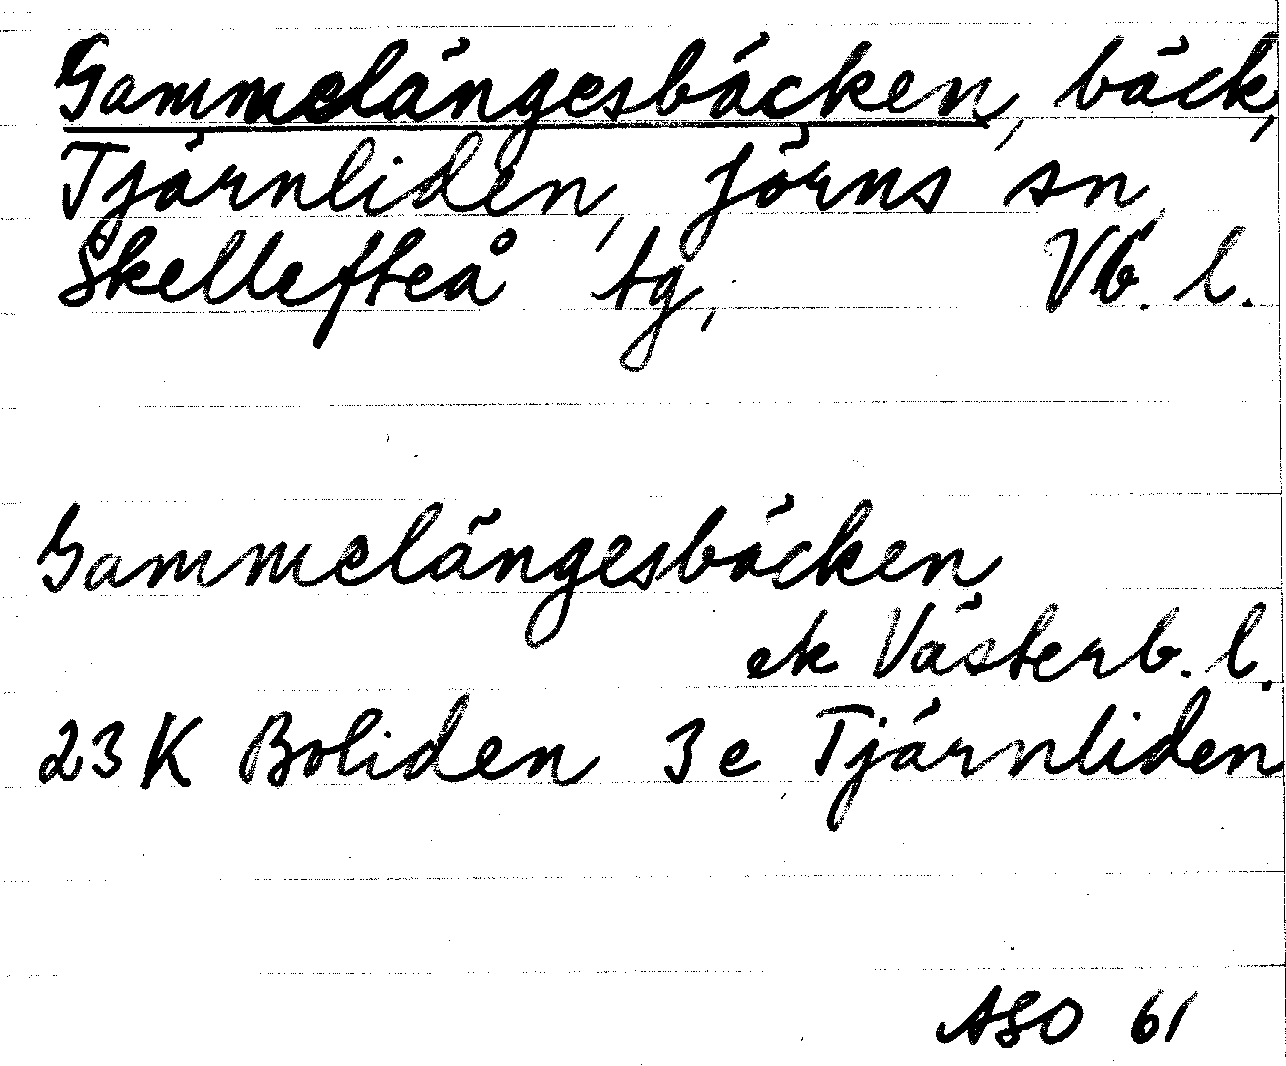 Gammelängesbäcken, bäck,
Tjärnliden, Jörns sn
Skellefteå tg, Vb. l.
Gammelängesbäcken
ek Västerb. l.
23K Boliden 3e Tjärnliden
ASO 61